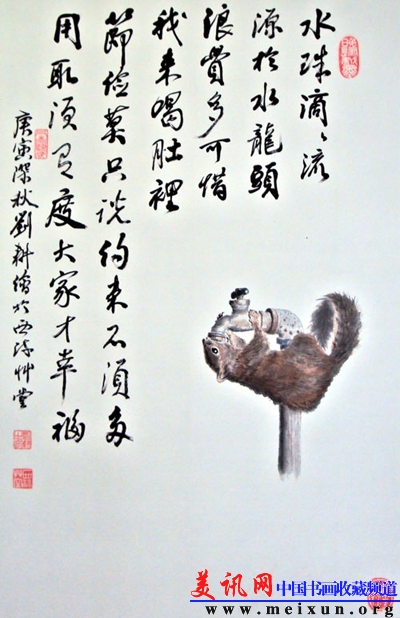 水珠滴々流
源於水龍頭
浪費多可惜
我来喝肚裡
節俭莫只说约束不须多
用取须有度大家才幸福
庚寅深秋劉耕繪於西艸堂
美讯网 中国书画收藏频道
www.meixun.org